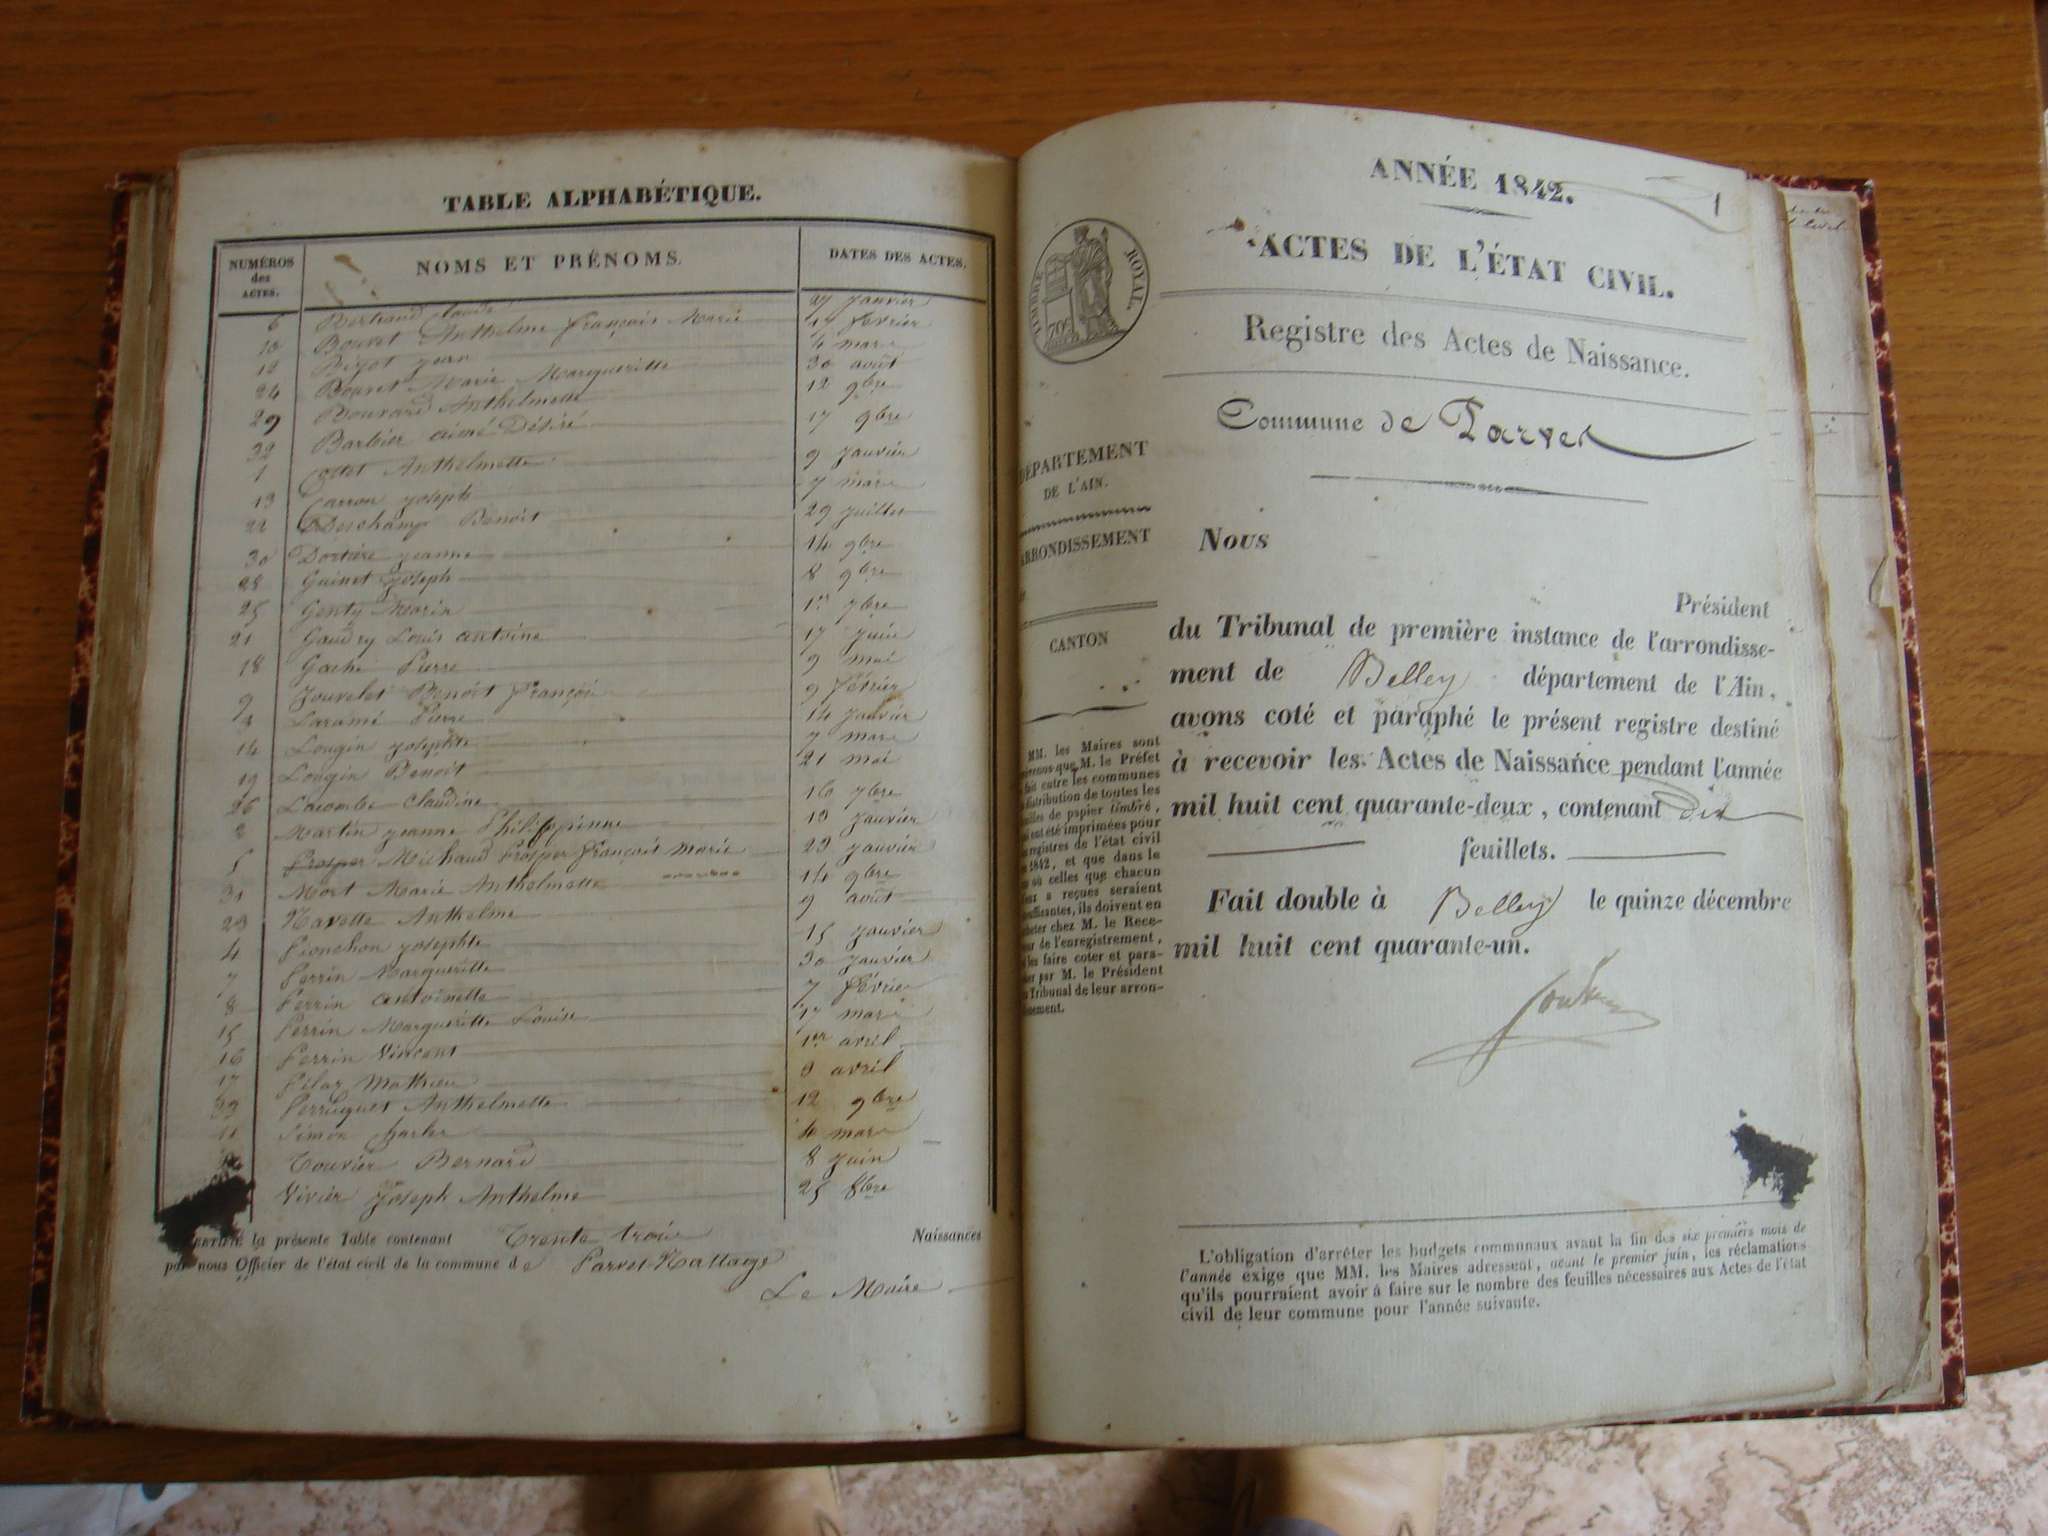 TABLE ALPHABÉTIQUE.
NUMÉROS des ACTES. NOMS ET PRÉNOMS. DATES DES ACTES.
6 Bertrand Claude 27 janvier
10 Bouvet Anthelme françois Marie 17 février
12 Bizot jean 4 mars
24 Bouvet Marie Margueritte 30 août
29 Bouvard Anthelmette 12 9bre
32 Barbier aimé Désiré 17 9bre
1 Cottet Anthelmette 9 janvier
13 Carron joseph 7 mars
22 Deschamp Benoit 29 juillet
30 jeanne 14 9bre
28 Guinet joseph 8 9bre
25 Genty Marin 1er 7bre
21 Gaudry Louis antoine 17 juin
18 Gache Pierre 9 mai
9 Jouvelet Benoit françois 9 février
3 Laramé Pierre 14 janvier
14 Longin josephte 7 mars
19 Longin Benoit 21 mai
26 Lacombe Claudine 16 7bre
2 Martin jeanne Philippinne 13 janvier
5 Prosper Michaud Prosper françois marie 23 janvier
31 Mort Marie Anthelmette 14 9bre
23 Navette Anthelme 9 août
4 Pionchon josephte 15 janvier
7 Perrin Margueritte 30 janvier
8 Perrin antoinette 7 février
15 Perrin Margueritte Louise 17 mars
16 Perrin Vincent 1er avril
17 Pilaz Mathieu 9 avril
33 Perruquet Anthelmette 12 9bre
11 Simon Charles mars
Touvier Bernard 8 juin
Vivier Joseph Anthelme 25 8bre
la présente Table contenant Trente trois Naissances
par nous Officier de l'état civil de la commune de Parves-Nattage
Le Maire
ANNÉE 1842. 1
ACTES DE L'ÉTAT CIVIL.
TIMBRE ROYAL
70c
Registre des Actes de Naissance.
Commune de Parves
DÉPARTEMENT
DE L'AIN.
ARRONDISSEMENT
CANTON
MM. les Maires sont
que M. le Préfet
fait entre les communes
distribution de toutes les
feuilles de papier timbré,
qui ont été imprimées pour
registres de l'état civil
1842, et que dans le
où celles que chacun
a reçues seraient
insuffisantes, ils doivent en
acheter chez M. le Rece-
veur de l'enregistrement,
les faire coter et para-
pher par M. le Président
Tribunal de leur arron-
dissement.
Nous
Président
du Tribunal de première instance de l'arrondisse-
ment de Belley département de l'Ain,
avons coté et paraphé le présent registre destiné
à recevoir les Actes de Naissance pendant l'année
mil huit cent quarante-deux, contenant dix
feuillets.
Fait double à Belley le quinze décembre
mil huit cent quarante-un.
L'obligation d'arrêter les budgets communaux avant la fin des six premiers mois de
l'année exige que MM. les Maires adressent, avant le premier juin, les réclamations
qu'ils pourraient avoir à faire sur le nombre des feuilles nécessaires aux Actes de l'état
civil de leur commune pour l'année suivante.